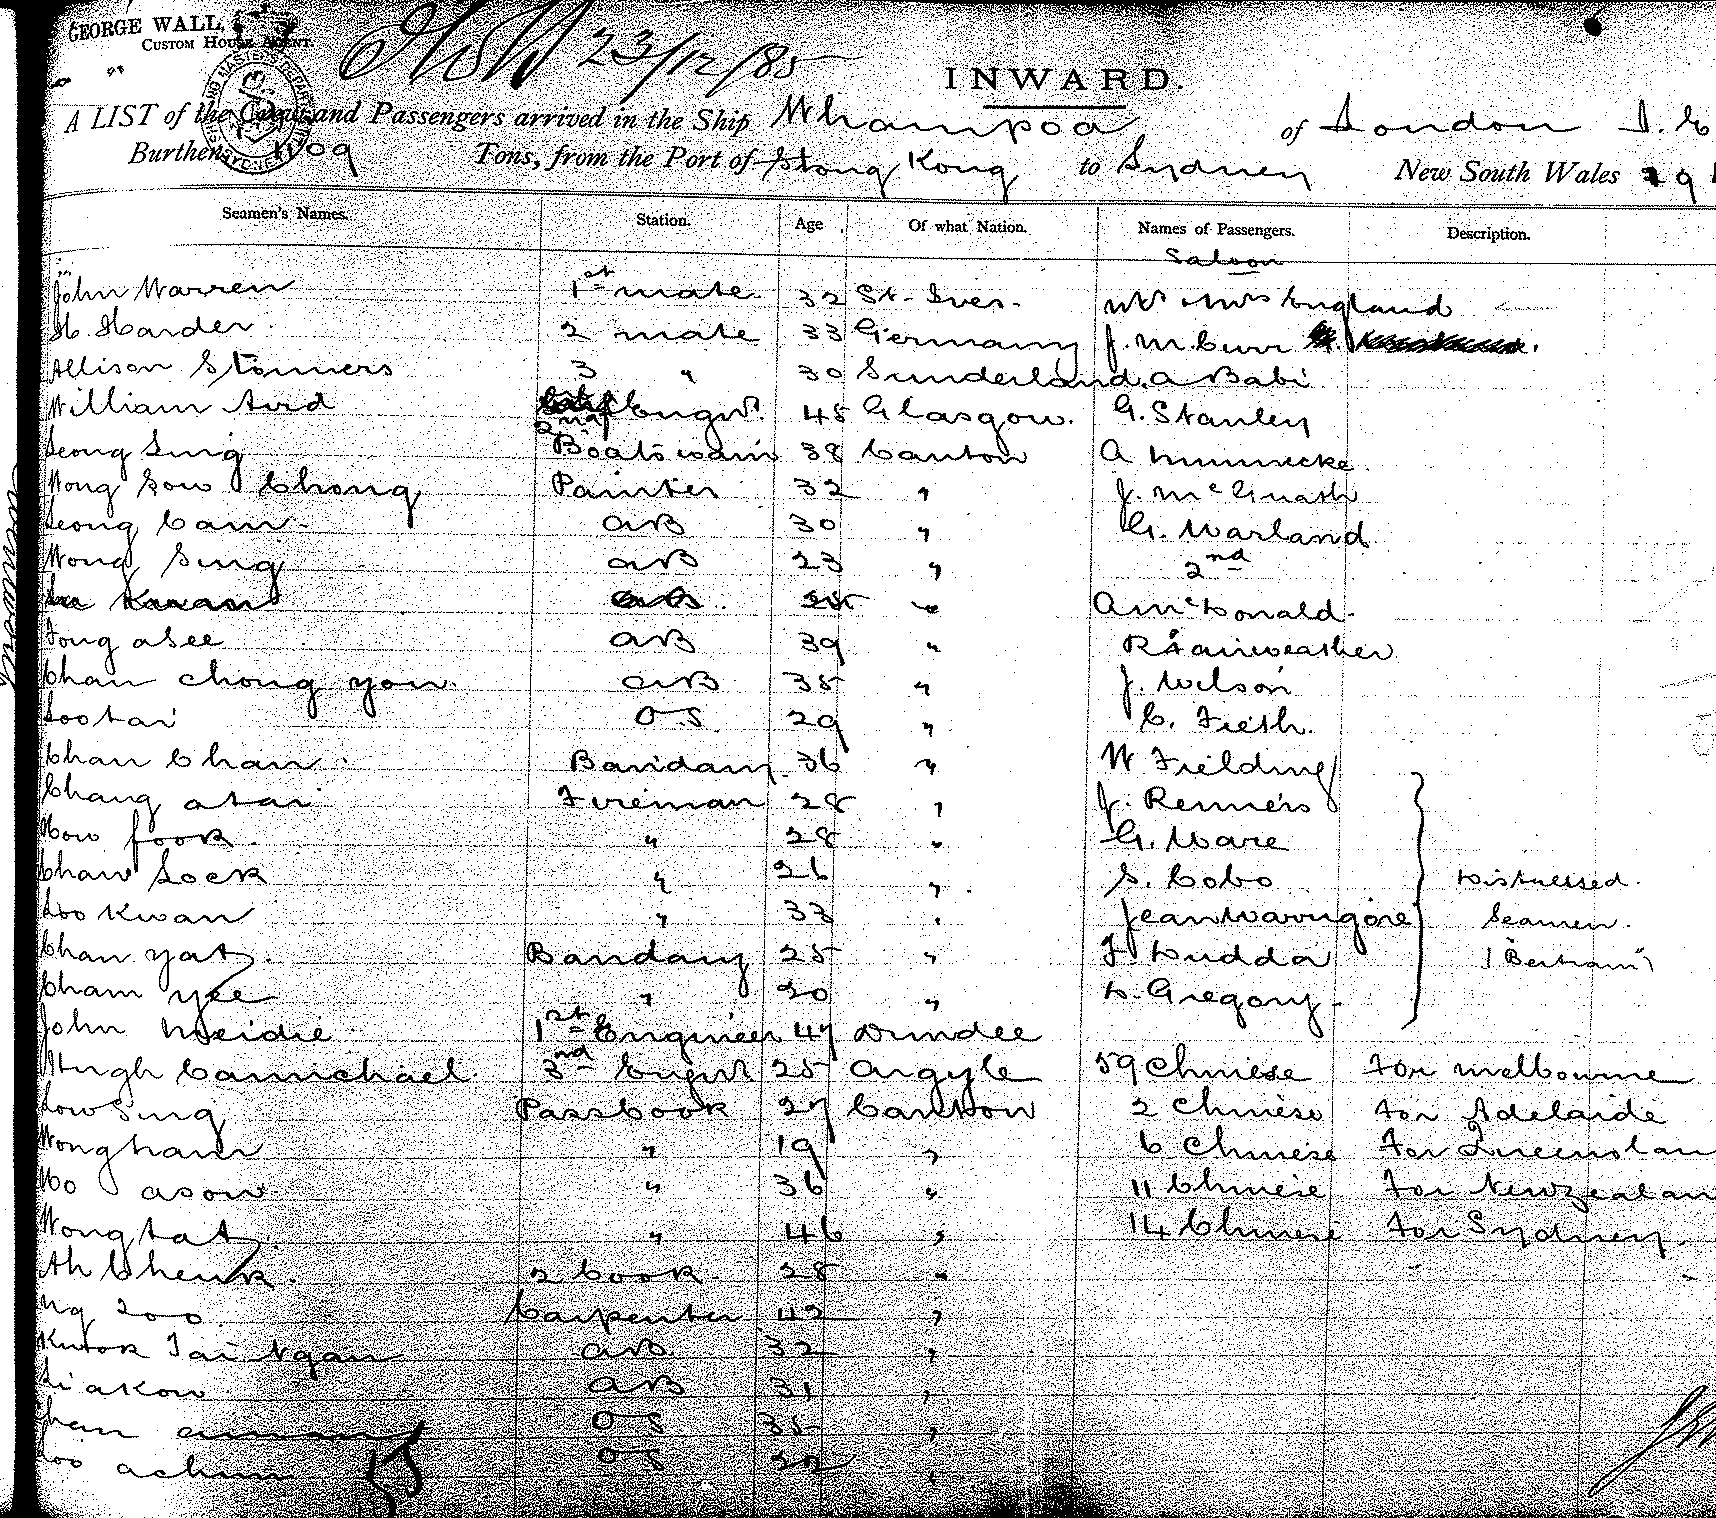 GEORGE WALL,
CUSTOM HOUSE AGENT.
23/12/85
INWARD.
A LIST of the Crew and Passengers arrived in the Ship Whampoa of London
Burthen 1109 Tons, from the Port of Hong Kong to Sydney New South Wales
Seamen's Names. Station. Age Of what Nation. Names of Passengers. Description.
Saloon
John Warren 1st mate 32 St. Ives. Mr & Mrs England
H. Harder. 2 mate 33 Germany J. M. Curr
Allison Stonners 3 " 30 Sunderland. A Babi
William Aird 2nd Engnr. 45 Glasgow. G. Stanley
Leong Sing Boatswain 38 Canton A
Wong Sow Chong Painter 32 " J. McGnash
Leong Cam AB 30 " G. Warland
Wong Sing AB 23 " 2nd
AB " A McDonald
Fong aSee AB 39 " R Fairweather
Chan Chong you AB 35 " J. Wilson
Loo tai OS 29 " C. Fieth.
Chan Chan Bandary 36 " W Fielding
Chang atai Fireman 28 " J. Renners
How fook " 28 " G. Ware
Chaw Sock " 26 " S. Cobo Distressed
Loo Kwan " 33 " Jean Seamen.
Chan yat Bandary 25 " F Dudda "Bertram"
Cham yee " 20 " D. Gregory
John Meidie 1st Engineer 47 Dundee
Hugh Carmichael 3nd Engnr 25 Argyle 59 Chinese For Melbourne
Low Sing Pass Cook 27 Canton 2 Chinese for Adelaide
Wong ham " 19 " 6 Chinese For Queenslan
Ho asow " 36 " 11 Chinese For New Zealan
Wong tat " 46 " 14 Chinese For Sydney.
Ah Cheuk 2 Cook 28 "
Ng Zoo Carpenter 42 "
Tai Ngan AB 32 "
Li akow AB 31 "
OS 35 "
Loo achun OS 22 "